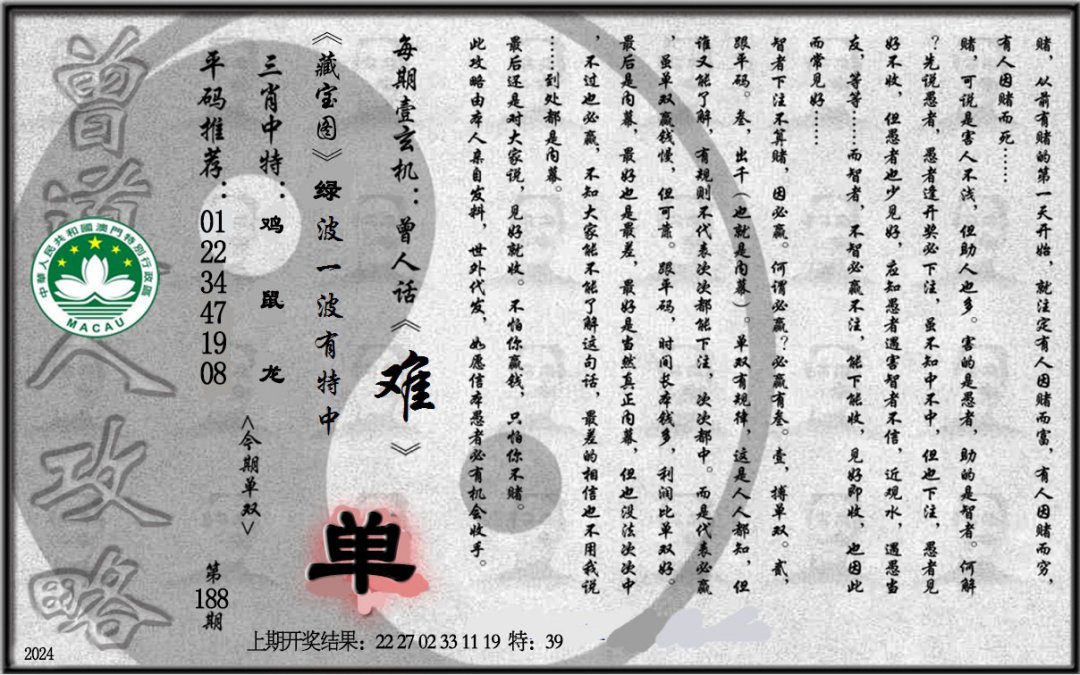 赌，从前有赌的第一天开始，就注定有人因赌而富，有人因赌而穷，
有人因赌而死……
赌，可说是害人不浅，但助人也多。害的是愚者，助的是智者。何解
？先说愚者，愚者逢开奖必下注，虽不知中不中，但也下注，愚者见
好不收，但愚者也少见好，应知愚者遇害智者不信，近观水，遇愚当
友，等等……而智者，不智必赢不注，能下能收，见好即收，也因此
而常见好……
智者下注不算赌，因必赢。何谓必赢？必赢有叁。壹，搏单双。贰，
跟平码。叁，出千（也就是内幕）。单双有规律，这是人人都知，但
谁又能了解，有规则不代表次次都能下注，次次都中。而是代表必赢
，虽单双赢钱慢，但可靠。跟平码，时间长本钱多，利润比单双好。
最后是内幕，最好也是最差，最好是当然真正内幕，但也没法次次中
，不过也必赢，不知大家能不能了解这句话，最差的相信也不用我说
……到处都是内幕。
最后还是对大家说，见好就收。不怕你赢钱，只怕你不赌。
此攻略由本人亲自发料，世外代发，如愿信本愚者必有机会收手。
每期壹玄机：曾人话《难》
《藏宝图》绿波一波有特中
单
三肖中特：鸡 鼠 龙
<今期单双>
平码推荐：01 22 34 47 19 08
第188期
曾道人攻略
中華人民共和國澳門特別行政區
MACAU
上期开奖结果：22 27 02 33 11 19 特：39
2024